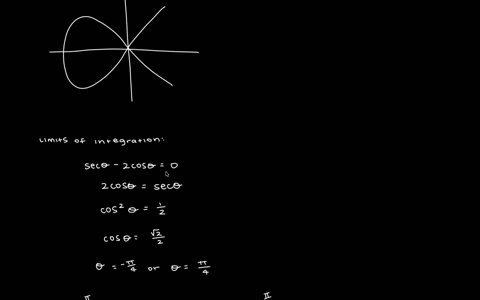 Limits of integration:
secθ - 2cosθ = 0
2cosθ = secθ
cos² θ = 1/2
cosθ = √2/2
θ = -π/4 or θ = π/4
π π